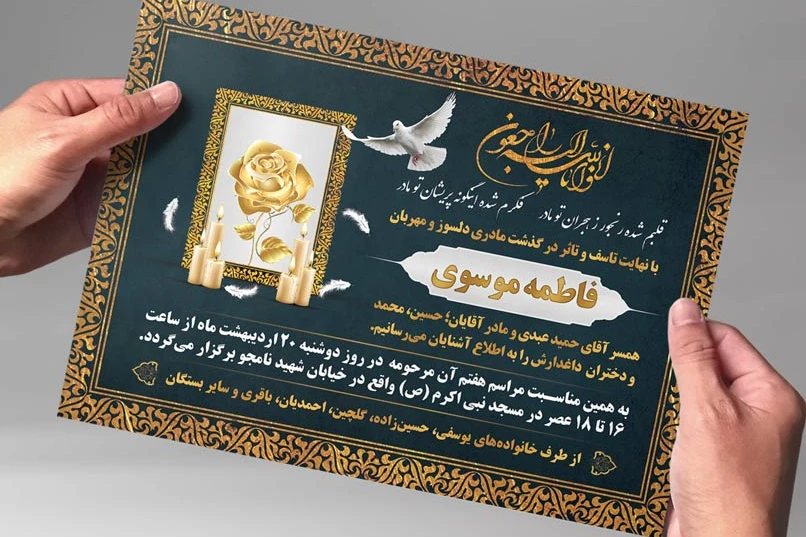 انا لله و انا الیه راجعون
قلبم شده رنجور ز هجران تو مادر
فکرم شده اینگونه پریشان تو مادر
با نهایت تاسف و تاثر درگذشت مادری دلسوز و مهربان
فاطمه موسوی
همسر آقای حمید عبدی و مادر آقایان؛ حسین، محمد
و دختران داغدارش را به اطلاع آشنایان می‌رسانیم.
به همین مناسبت مراسم هفتم آن مرحومه در روز دوشنبه ۲۰ اردیبهشت ماه از ساعت
۱۶ تا ۱۸ عصر در مسجد نبی اکرم (ص) واقع در خیابان شهید نامجو برگزار می‌گردد.
از طرف خانواده‌های یوسفی، حسین‌زاده، گلچین، احمدیان، باقری و سایر بستگان